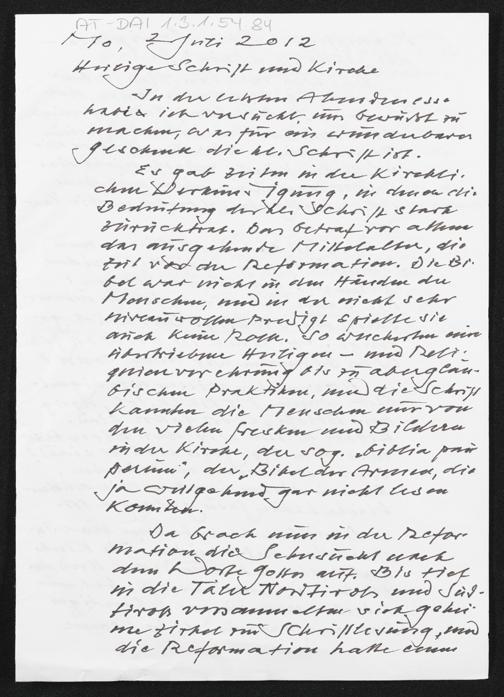 AT-DAI 1.3.1.54.84
Mo, 2 Juli 2012
Heilige Schrift und Kirche
In der letzten Abendmesse
habe ich versucht, uns bewußt zu
machen, was für ein wunderbares
Geschenk die hl. Schrift ist.
Es gab Zeiten in der kirchli-
chen Verkündigung, in denen die
Bedeutung der hl. Schrift stark
zurücktrat. Das betraf vor allem
das ausgehende Mittelalter, die
Zeit vor der Reformation. Die Bi-
bel war nicht in den Händen der
Menschen, und in der nicht sehr
niveauvollen Predigt spielte sie
auch keine Rolle. So wucherten eine
übertriebene Heiligen- und Reli-
quienverehrung bis zu abergläu-
bischen Praktiken, und die Schrift
kannten die Menschen nur von
den vielen Fresken und Bildern
in der Kirche, der sog. „Biblia pau-
perum", der „Bibel der Armen, die
ja weitgehend gar nicht lesen
konnten.
Da brach nun in der Refor-
mation die Sehnsucht nach
dem Worte Gottes auf. Bis tief
in die Täler Nordtirols und Süd-
tirols versammelten sich gehei-
me Zirkel zur Schriftlesung, und
die Reformation hatte einen